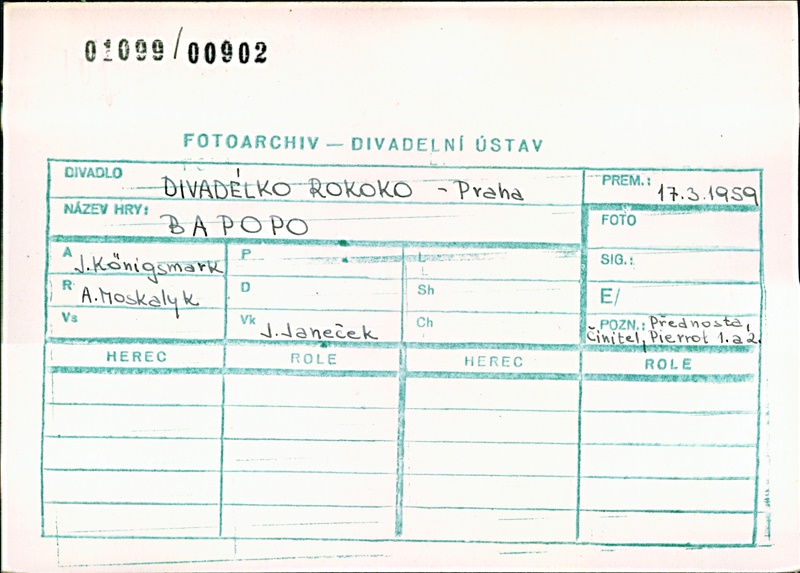 01099/00902
FOTOARCHIV — DIVADELNÍ ÚSTAV
DIVADLO DIVADÉLKO ROKOKO - Praha PREM.: 17.3.1959
NÁZEV HRY: BAPOPO FOTO
A J. Königsmark P L SIG.:
R A. Moskalyk D Sh E/
Vs Vk J. Janeček Ch POZN.: Přednosta,
Činitel, Pierrot 1. a 2.
HEREC ROLE HEREC ROLE